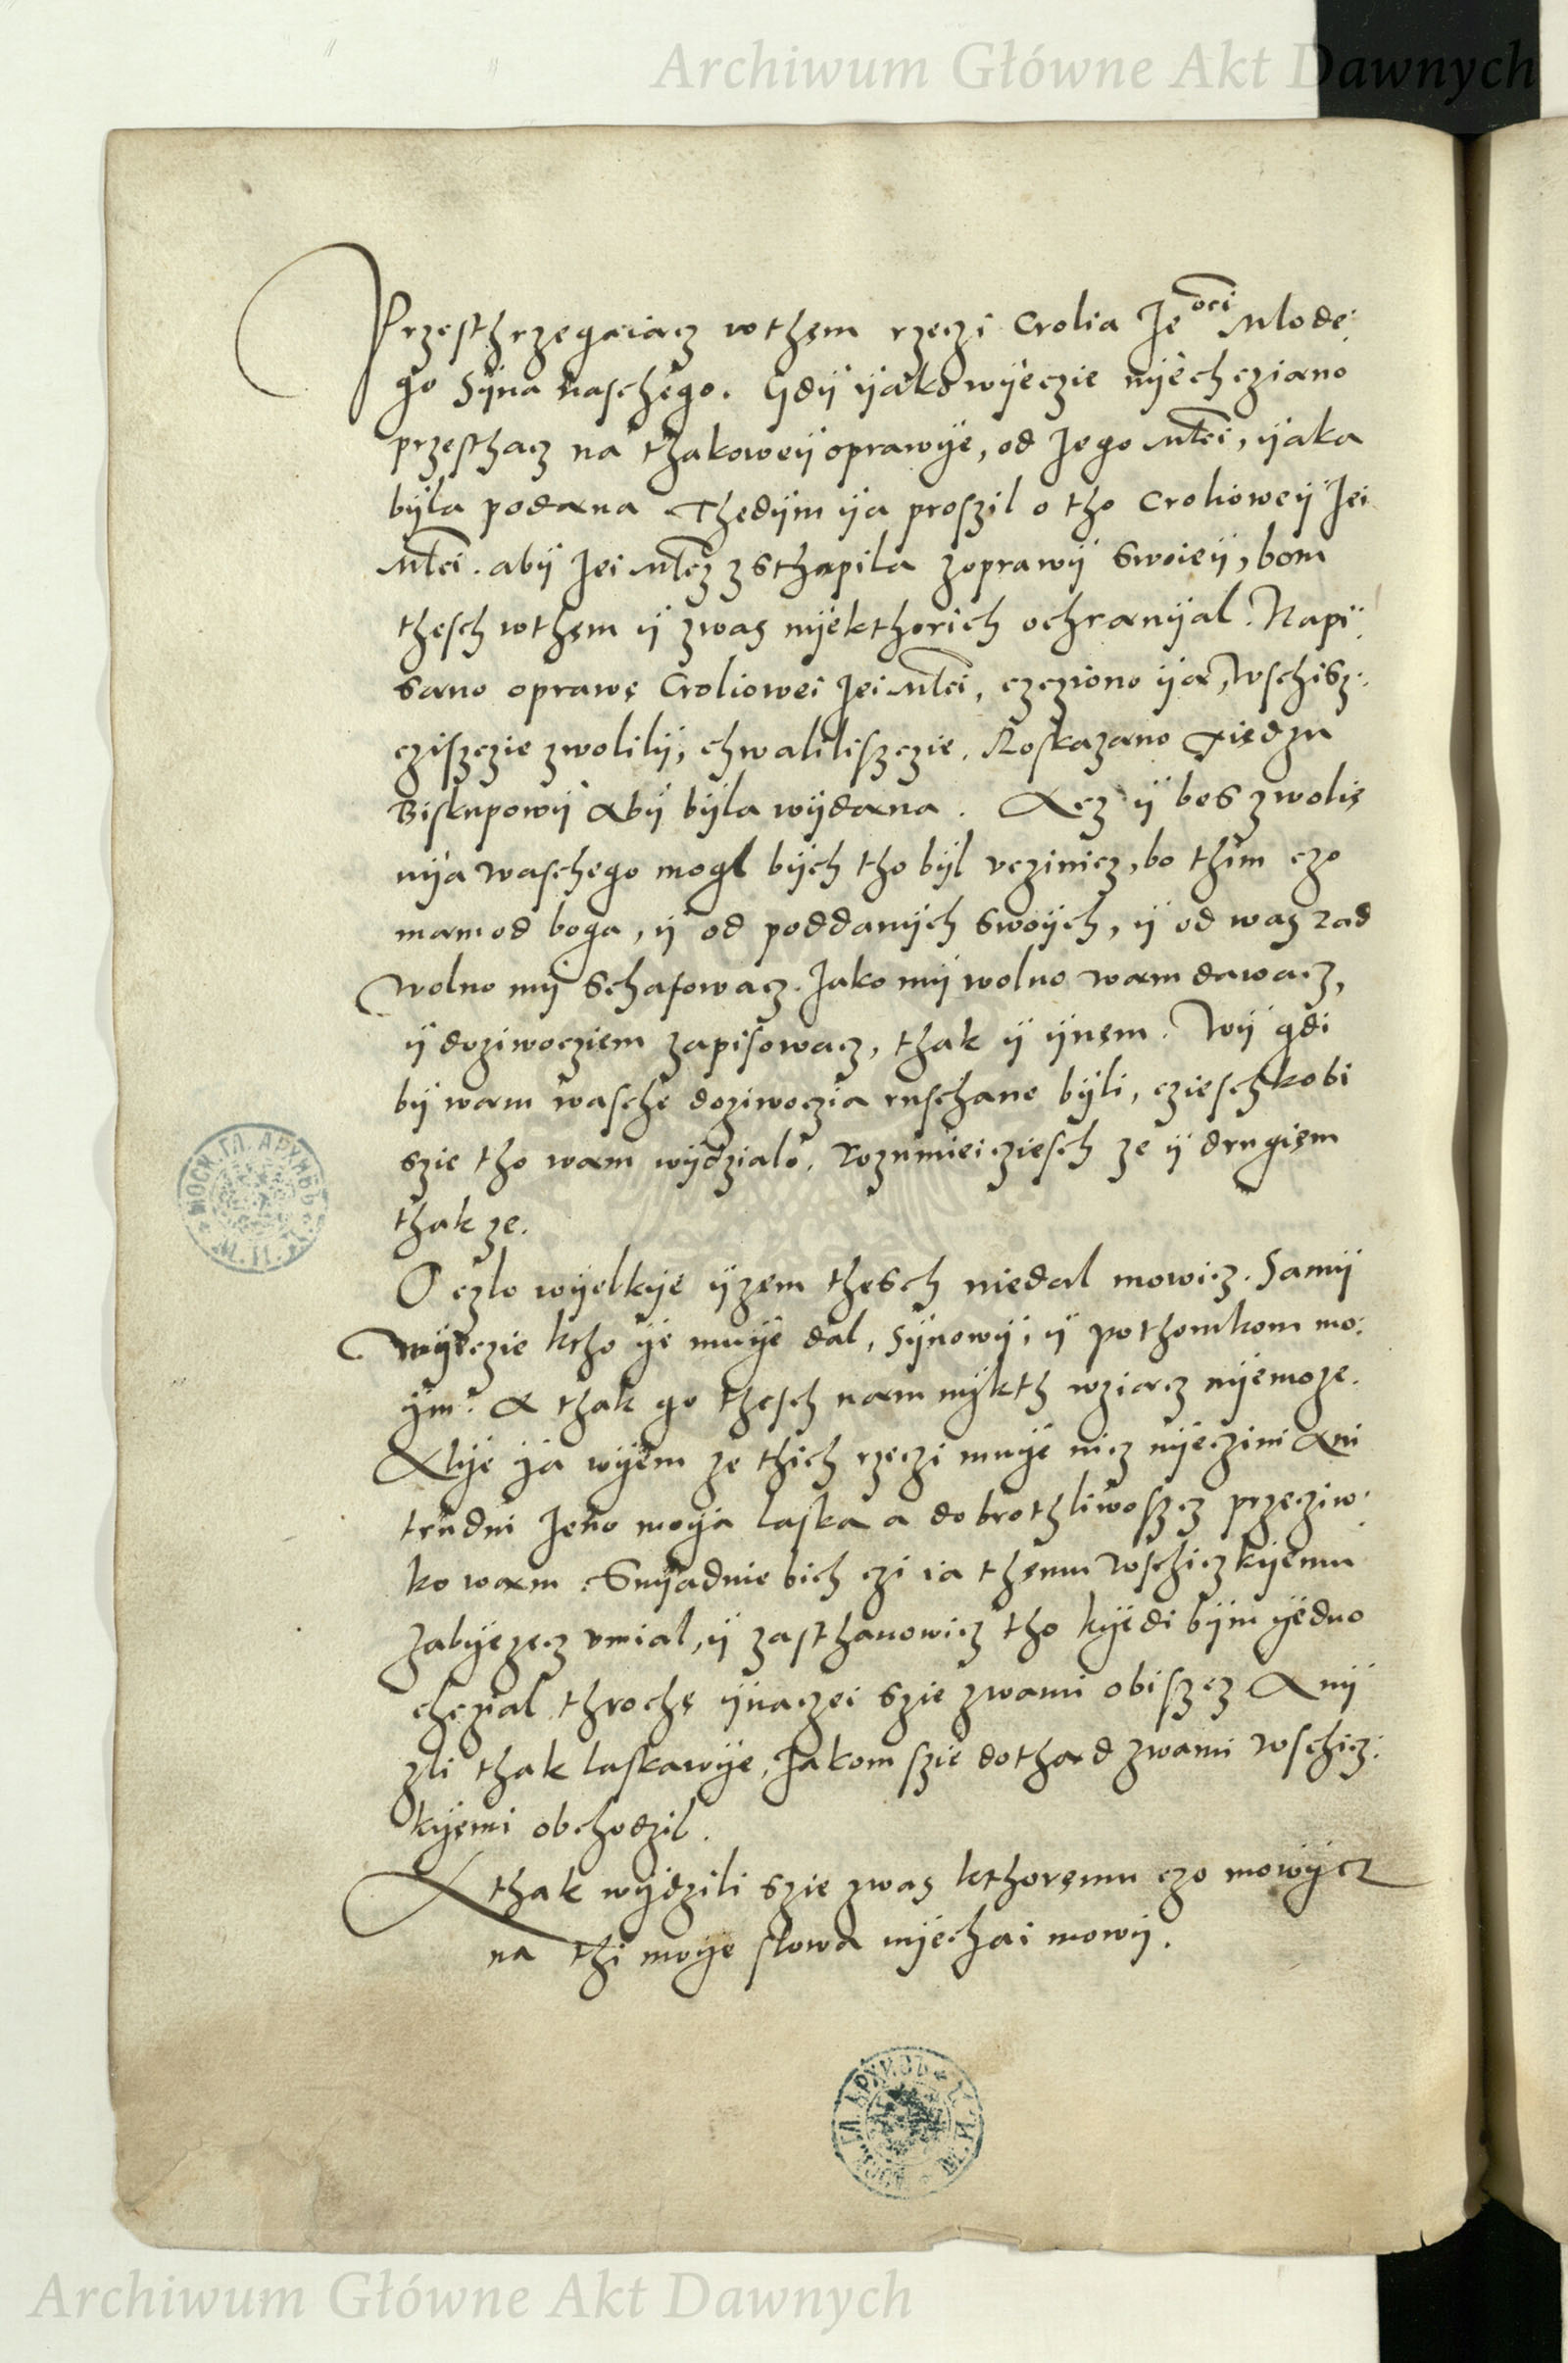 Archiwum Główne Akt Dawnych
Przesthrzegaiacz wthęm rzeczi Crolia Je ocͥi Mlode:
go Sÿna naschego. Gdÿ ÿako wÿeczie nÿechcziano
przesthacz na thakoweÿ oprawÿe, od Jego Mͭci, ÿaka
bÿla podana Thedÿm ÿa proszil o tho Crolioweÿ Jei
Mͭci. abÿ Jei Mͭcz zsthapila zoprawÿ swoieÿ, bom
thesch wthęm ÿ zwas nÿekthorich ochranÿal. Napÿ:
sano oprawę Croliowei Jei Mͭci, czcziono ÿa, Wschisz:
cziszczie zwolilÿ, chwaliliszczie. Roskazano Xiędzu
Biskupowÿ abÿ bÿla wÿdana. Acz ÿ bes zwolię
nÿa waschego mogl bÿch tho bÿl vczinicz, bo thim czo
mam od boga, ÿ od poddanÿch swoÿch, ÿ od was rad
Wolno mÿ Schafowacz. Jako mÿ wolno wam dawacz,
ÿ doziwocziem zapisowacz, thak ÿ ÿnęm. Wÿ gdi
bÿ wam wasche doziwoczia ruschane bÿli, czieschkobi
szie tho wam wÿdzialo. Rozumieicziesch ze ÿ drugięm
thak ze.
O czlo wÿelkÿe ÿzem thesch niedal mowicz. Samÿ
Wÿeczie ktho ÿe mnÿe dal, Sÿnowÿ, ÿ pothomkom mo:
ÿm. A thak go thesch nam nÿkth wziacz nÿemoze.
Alÿe ÿa wÿem ze thich rzeczi mnÿe nicz nÿeczini Ani
trudni Jeno moÿa laska a dobrothliwoszcz przeciw:
ko wam. Snÿadnie bich czi ia thęmu Wschiczkÿemu
zabÿezecz vmial, ÿ zasthanowicz tho kÿedi bÿm ÿedno
chczial throchę ÿnaczei szie zwami obiszcz Anÿ
zli thak laskawÿe, Jakom szie dothad zwami Wschicz:
kÿęmi obchodzil.
A thak wÿdzili szie zwas kthoręmu czo mowÿcz
na thi moÿe slowa nÿechai mowÿ.
Archiwum Główne Akt Dawnych